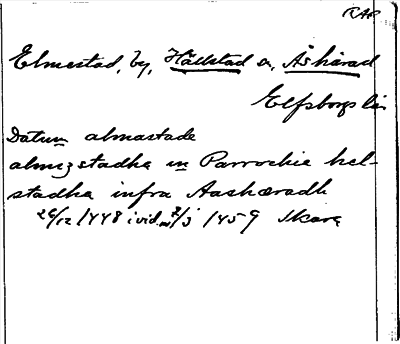 RAP
Elmestad, by, Hällstad sn, Ås härad
Elfsborgs län
Datum almastade
almszstadha in Parrochie hel-
stadha infra Aashæradh
26/12 1448 i vid. 3/3 1459 Skara